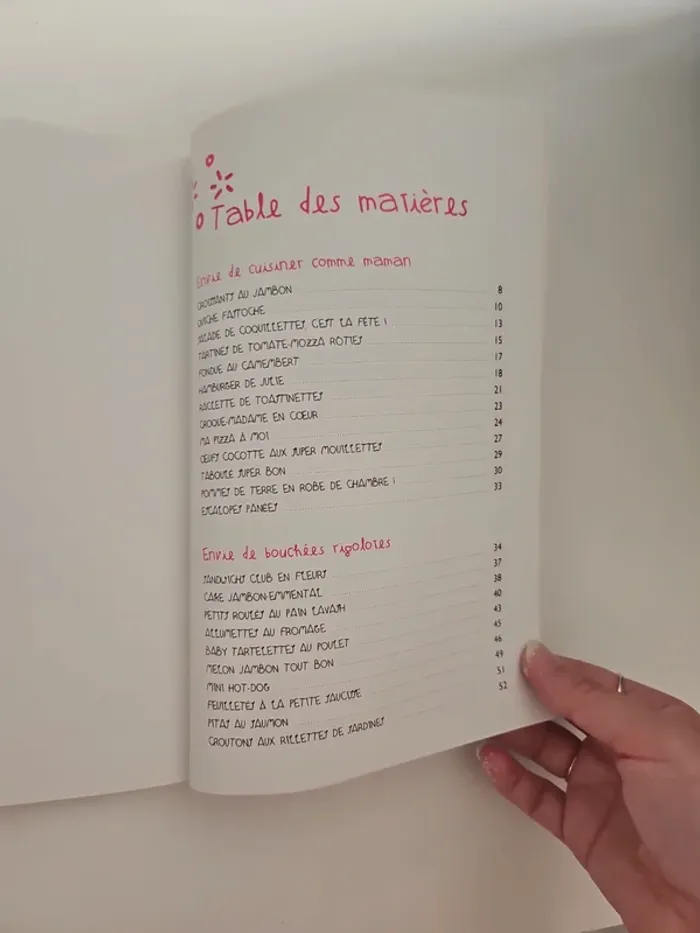 Table des matières
Envie de cuisiner comme maman
CROISSANTS AU JAMBON 8
QUICHE FASTOCHE 10
SALADE DE COQUILLETTES, C'EST LA FÊTE ! 13
TARTINES DE TOMATE-MOZZA RÔTIES 15
FONDUE AU CAMEMBERT 17
HAMBURGER DE JULIE 18
RACLETTE DE TOASTINETTES 21
CROQUE-MADAME EN CŒUR 23
MA PIZZA À MOI 24
ŒUFS COCOTTE AUX SUPER MOUILLETTES 27
TABOULÉ SUPER BON 29
POMMES DE TERRE EN ROBE DE CHAMBRE ! 30
ESCALOPES PANÉES 33
Envie de bouchées rigolotes
SANDWICHS CLUB EN FLEURS 34
CAKE JAMBON-EMMENTAL 37
PETITS ROULÉS AU PAIN LAVASH 38
ALLUMETTES AU FROMAGE 40
BABY TARTELETTES AU POULET 43
MELON JAMBON TOUT BON 45
MINI HOT-DOG 46
FEUILLETÉS À LA PETITE SAUCISSE 49
PITAS AU SAUMON 51
CROUTONS AUX RILLETTES DE SARDINES 52